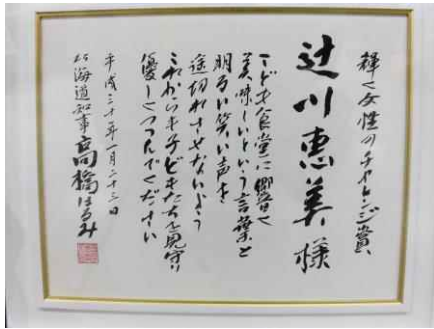 輝く女性のチャレンジ賞
辻川恵美様
こども食堂に響く
美味しいという言葉と
明るい笑い声を
途切れさせないよう
これからも子どもたちを見守り
優しくつつんでください
平成三十年一月二十三日
北海道知事高橋はるみ